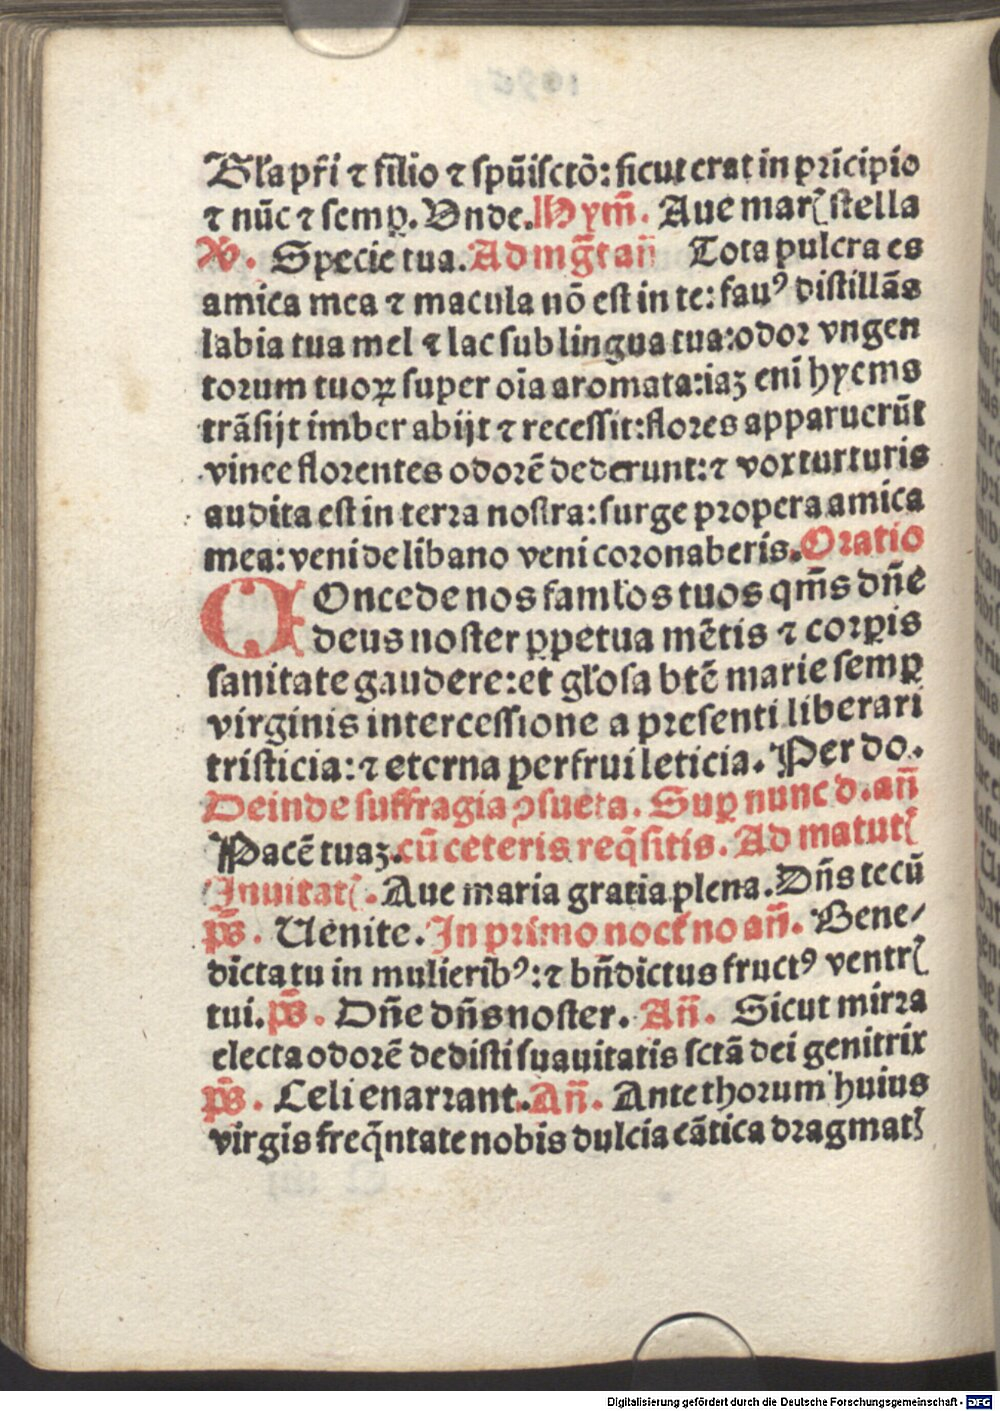 Gl'a pr̄i ⁊ filio ⁊ spūiſctō: ſicut erat in pricīpio
⁊ nūc ⁊ ſemꝑ. Unde. Hym̄. Aue marꝭ ſtella
℣. Specie tua. Ad mg̅tan̄ Tota pulcra es
amica mea ⁊ macula nō eſt in te: fauꝰ diſtillās
labia tua mel ⁊ lac ſub lingua tua: odoꝛ vngen
toꝛum tuoꝝ ſuper oīa aromata: iaꝫ enī hyems
trāſijt imber abijt ⁊ receſſit: floꝛes apparuerūt
vinee floꝛentes odoꝛē dederunt: ⁊ vox turturis
audita eſt in terꝛa noſtra: ſurge pꝛopera amica
mea: veni de libano veni coꝛonaberis. Oꝛatio
COncede nos faml'os tuos qm̄s dn̄e
deus noſter ꝑpetua mētis ⁊ coꝛꝑis
ſanitate gaudere: et gl'oſa btē marie ſemꝑ
virginis interceſſione a pꝛeſenti liberari
triſticia: ⁊ eterna perfrui leticia. Per do.
Deinde ſuffragia ꝯſueta. Suꝑ nunc d. an̄
Pacē tuaꝫ. cū ceteris req̄ſitis. Ad matutꝭ
Inuitatꝭ. Aue maria gratia plena. Dn̄s tecū
ps̄. Uenite. In pꝛimo noct'no an̄. Bene⸗
dicta tu in mulieribꝰ: ⁊ bn̄dictus fructꝰ ventrꝭ
tui. ps̄. Dn̄e dn̄s noſter. An̄. Sicut mirꝛa
electa odoꝛē dediſti ſuauitatis ſctā dei genitrix
ps̄. Celi enarꝛant. An̄. Ante thoꝛum huius
virgis freq̄ntate nobis dulcia cātica dꝛagmatꝭ
Digitalisierung gefördert durch die Deutsche Forschungsgemeinschaft - DFG